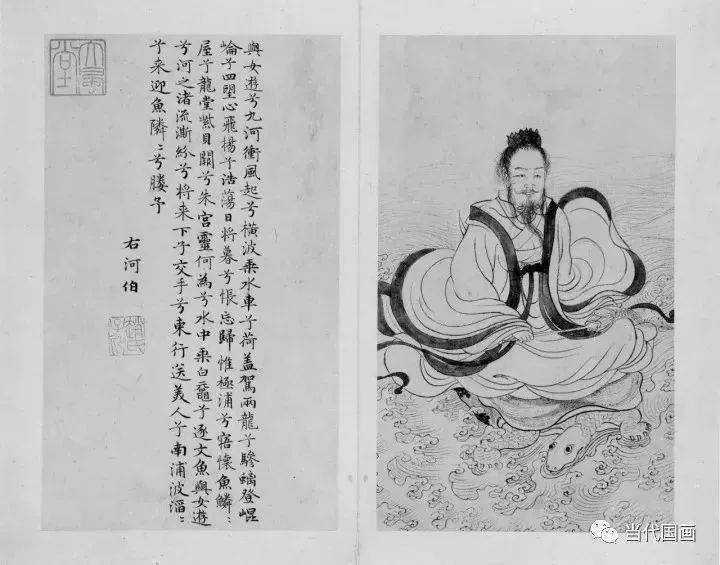 與女遊兮九河衝風起兮橫波乘水車兮荷蓋駕兩龍兮驂螭登崐
崘兮四望心飛揚兮浩蕩日將暮兮悵忘歸惟極浦兮寤懷魚鱗〻
屋兮龍堂紫貝闕兮朱宮靈何為兮水中乘白黿兮逐文魚與女遊
兮河之渚流澌紛兮將来下子交手兮東行送美人兮南浦波滔〻
兮来迎魚隣〻兮媵予
右河伯
趙氏子昂
当代国画